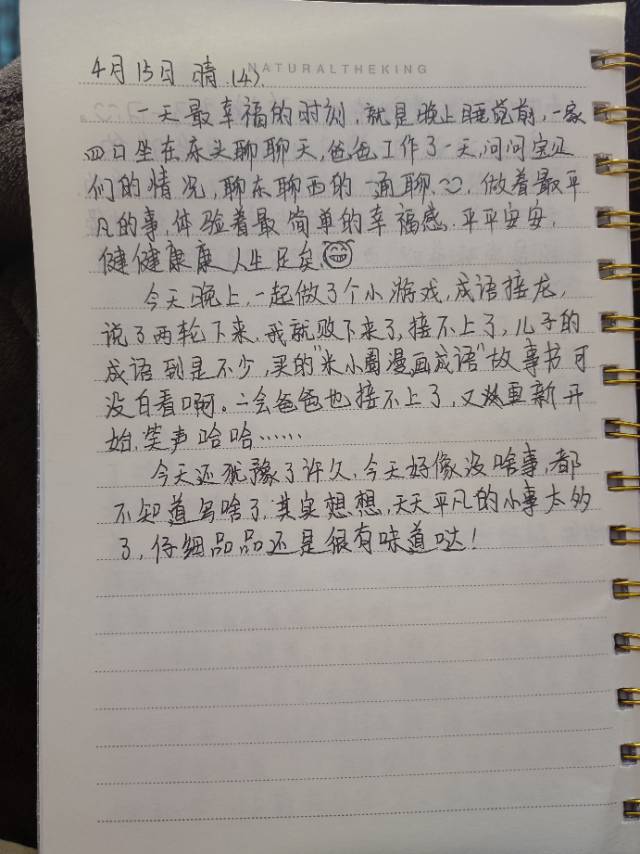 NATURALTHEKING
4月15日 晴 (4).
一天最幸福的时刻,就是晚上睡觉前,一家
四口坐在床头聊聊天,爸爸工作了一天,问问宝贝
们的情况,聊东聊西的一通聊,做着最平
凡的事,体验着最简单的幸福感.平平安安,
健健康康人生足矣
今天晚上,一起做了个小游戏,成语接龙,
说了两轮下来,我就败下来了,接不上了,儿子的
成语到是不少,买的"米小圈漫画成语"故事书可
没白看啊。二会爸爸也接不上了,又重新开
始,笑声哈哈……
今天还犹豫了许久,今天好像没啥事,都
不知道写啥了,其实想想,天天平凡的小事太多
了,仔细品品还是很有味道哒!